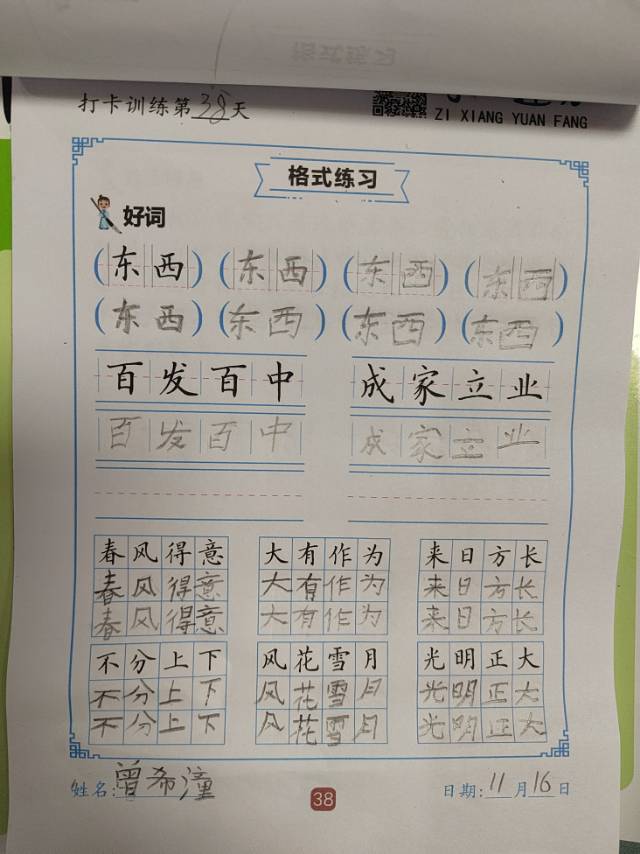 格式练习
打卡训练第38天
ZI XIANG YUAN FANG
格式练习
好词
(东西) (东西) (东西) (东西)
(东西) (东西) (东西) (东西)
百发百中 成家立业
百发百中 成家立业
春风得意 大有作为 来日方长
春风得意 大有作为 来日方长
春风得意 大有作为 来日方长
不分上下 风花雪月 光明正大
不分上下 风花雪月 光明正大
不分上下 风花雪月 光明正大
姓名:曾希潼 38 日期:11月16日